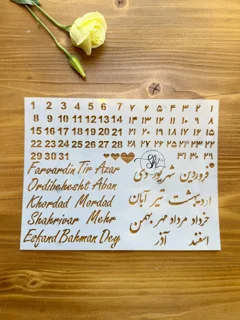 1 2 3 4 5 6 7
8 9 10 11 12 13 14
15 16 17 18 19 20 21
22 23 24 25 26 27 28
29 30 31
Farvardin Tir Azar
Ordibehesht Aban
Khordad Mordad
Shahrivar Mehr
Esfand Bahman Dey
۱ ۲ ۳ ۴ ۵ ۶ ۷
۸ ۹ ۱۰ ۱۱ ۱۲ ۱۳ ۱۴
۱۵ ۱۶ ۱۷ ۱۸ ۱۹ ۲۰ ۲۱
۲۲ ۲۳ ۲۴ ۲۵ ۲۶ ۲۷ ۲۸
۲۹ ۳۰ ۳۱
فروردین شهریور دی
اردیبهشت تیر آبان
خرداد مرداد مهر بهمن
اسفند آذر